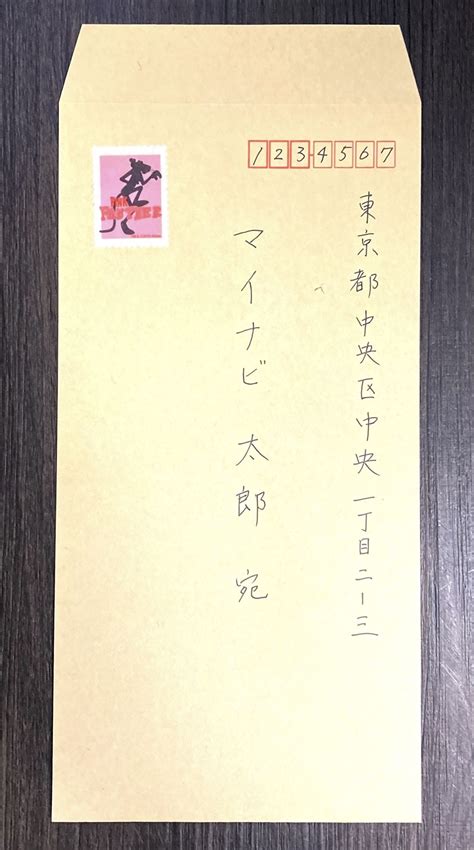 1234567
東京都中央区中央一丁目二ー三
マイナビ 太郎 宛
PINK
PANTHER